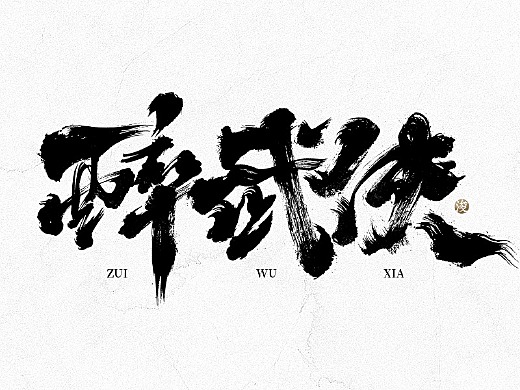 醉武侠
ZUI WU XIA